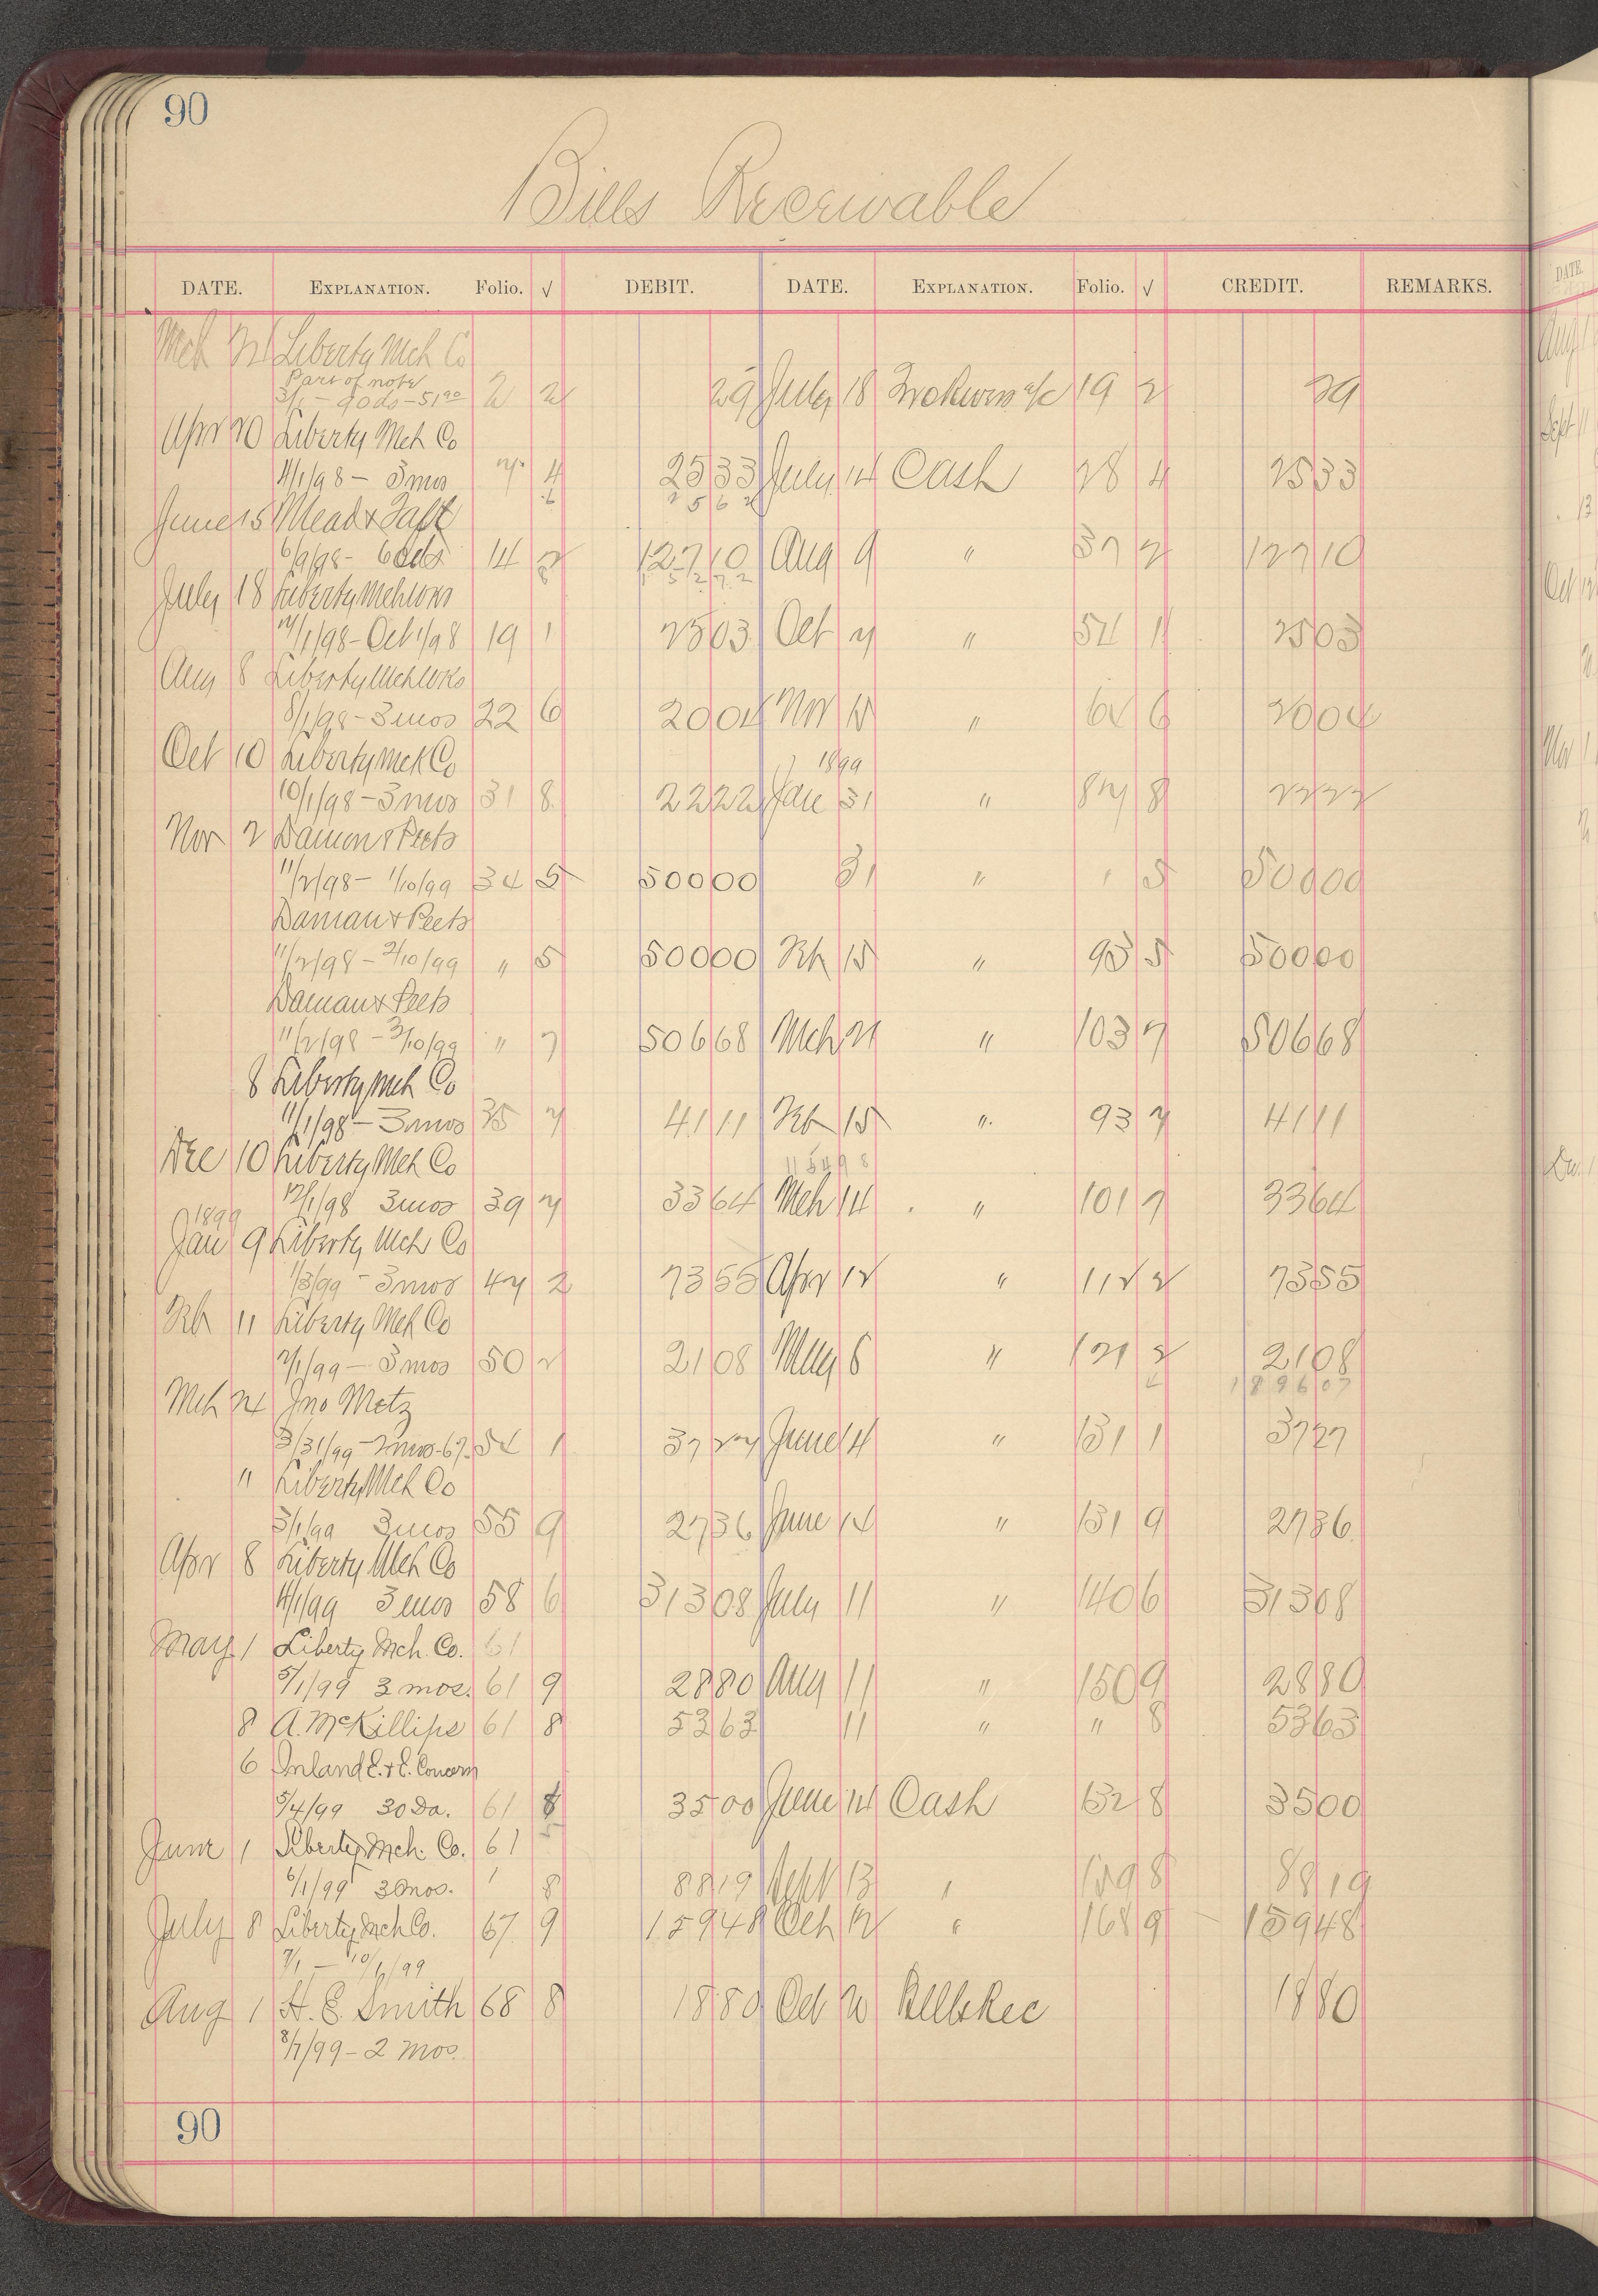 90
Bills Receivable
DATE. EXPLANATION. Folio. √ DEBIT. DATE. EXPLANATION. Folio. √ CREDIT. REMARKS.
Mch 21 Liberty Mch Co
Part of note
3/1 - 90 ds - 51 90 2 2 29 July 18 a/c 19 2 29
Apr 20 Liberty Mch Co
4/1/98 - 3 mos 7 4 25 33 July 14 Cash 28 4 25 33
6 2 5 6 2
June 15 Mead & Taft
6/9/98 - 60 ds 14 2 127 10 Aug 9 " 37 2 127 10
8 1 5 2 7 2
July 18 Liberty Mch Wks
7/1/98 - Oct 1/98 19 1 25 03 Oct 7 " 54 1 25 03
Aug 8 Liberty Mch Wks
8/1/98 - 3 mos 22 6 20 04 Nov 12 " 62 6 20 04
Oct 10 Liberty Mch Co 1899
10/1/98 - 3 mos 31 8 22 22 Jan 31 " 87 8 22 22
Nov 2 Damon & Peets
11/2/98 - 1/10/99 34 5 500 00 31 " " 5 500 00
Damon & Peets
11/2/98 - 2/10/99 " 5 500 00 Feb 15 " 93 5 500 00
Damon & Peets
11/2/98 - 3/10/99 " 7 506 68 Mch 21 " 103 7 506 68
8 Liberty Mch Co
11/1/98 - 3 mos 35 7 41 11 Feb 15 " 93 7 41 11
Dec 10 Liberty Mch Co 11 5 4 9 8
12/1/98 3 mos 39 7 33 64 Mch 14 " 101 7 33 64
1899
Jan 9 Liberty Mch Co
1/3/99 - 3 mos 47 2 73 55 Apr 12 " 112 2 73 55
Feb 11 Liberty Mch Co
2/1/99 - 3 mos 50 2 21 08 May 6 " 121 2 21 08
1 8 9 6 0 7
Mch 24 Jno Metz
3/31/99 - 2 mos - 6% 54 1 37 27 June 14 " 131 1 37 27
" Liberty Mch Co
3/1/99 3 mos 55 9 27 36 June 14 " 131 9 27 36
Apr 8 Liberty Mch Co
4/1/99 3 mos 58 6 313 08 July 11 " 140 6 313 08
May 1 Liberty Mch. Co. 61
5/1/99 3 mos. 61 9 28 80 Aug 11 " 150 9 28 80
8 A. McKillips 61 8 53 63 11 " " 8 53 63
6 Inland E. & E. Concern
5/4/99 30 Da. 61 8 35 00 June 14 Cash 132 8 35 00
June 1 Liberty Mch. Co. 61
6/1/99 3 mos. ' 8 88 19 Sept 13 " 159 8 88 19
July 8 Liberty Mch Co. 67 9 159 48 Oct 12 " 168 9 159 48
7/1 - 10/1/99
Aug 1 H. E. Smith 68 8 18 80 Oct 20 Bills Rec 18 80
8/1/99 - 2 mos.
90